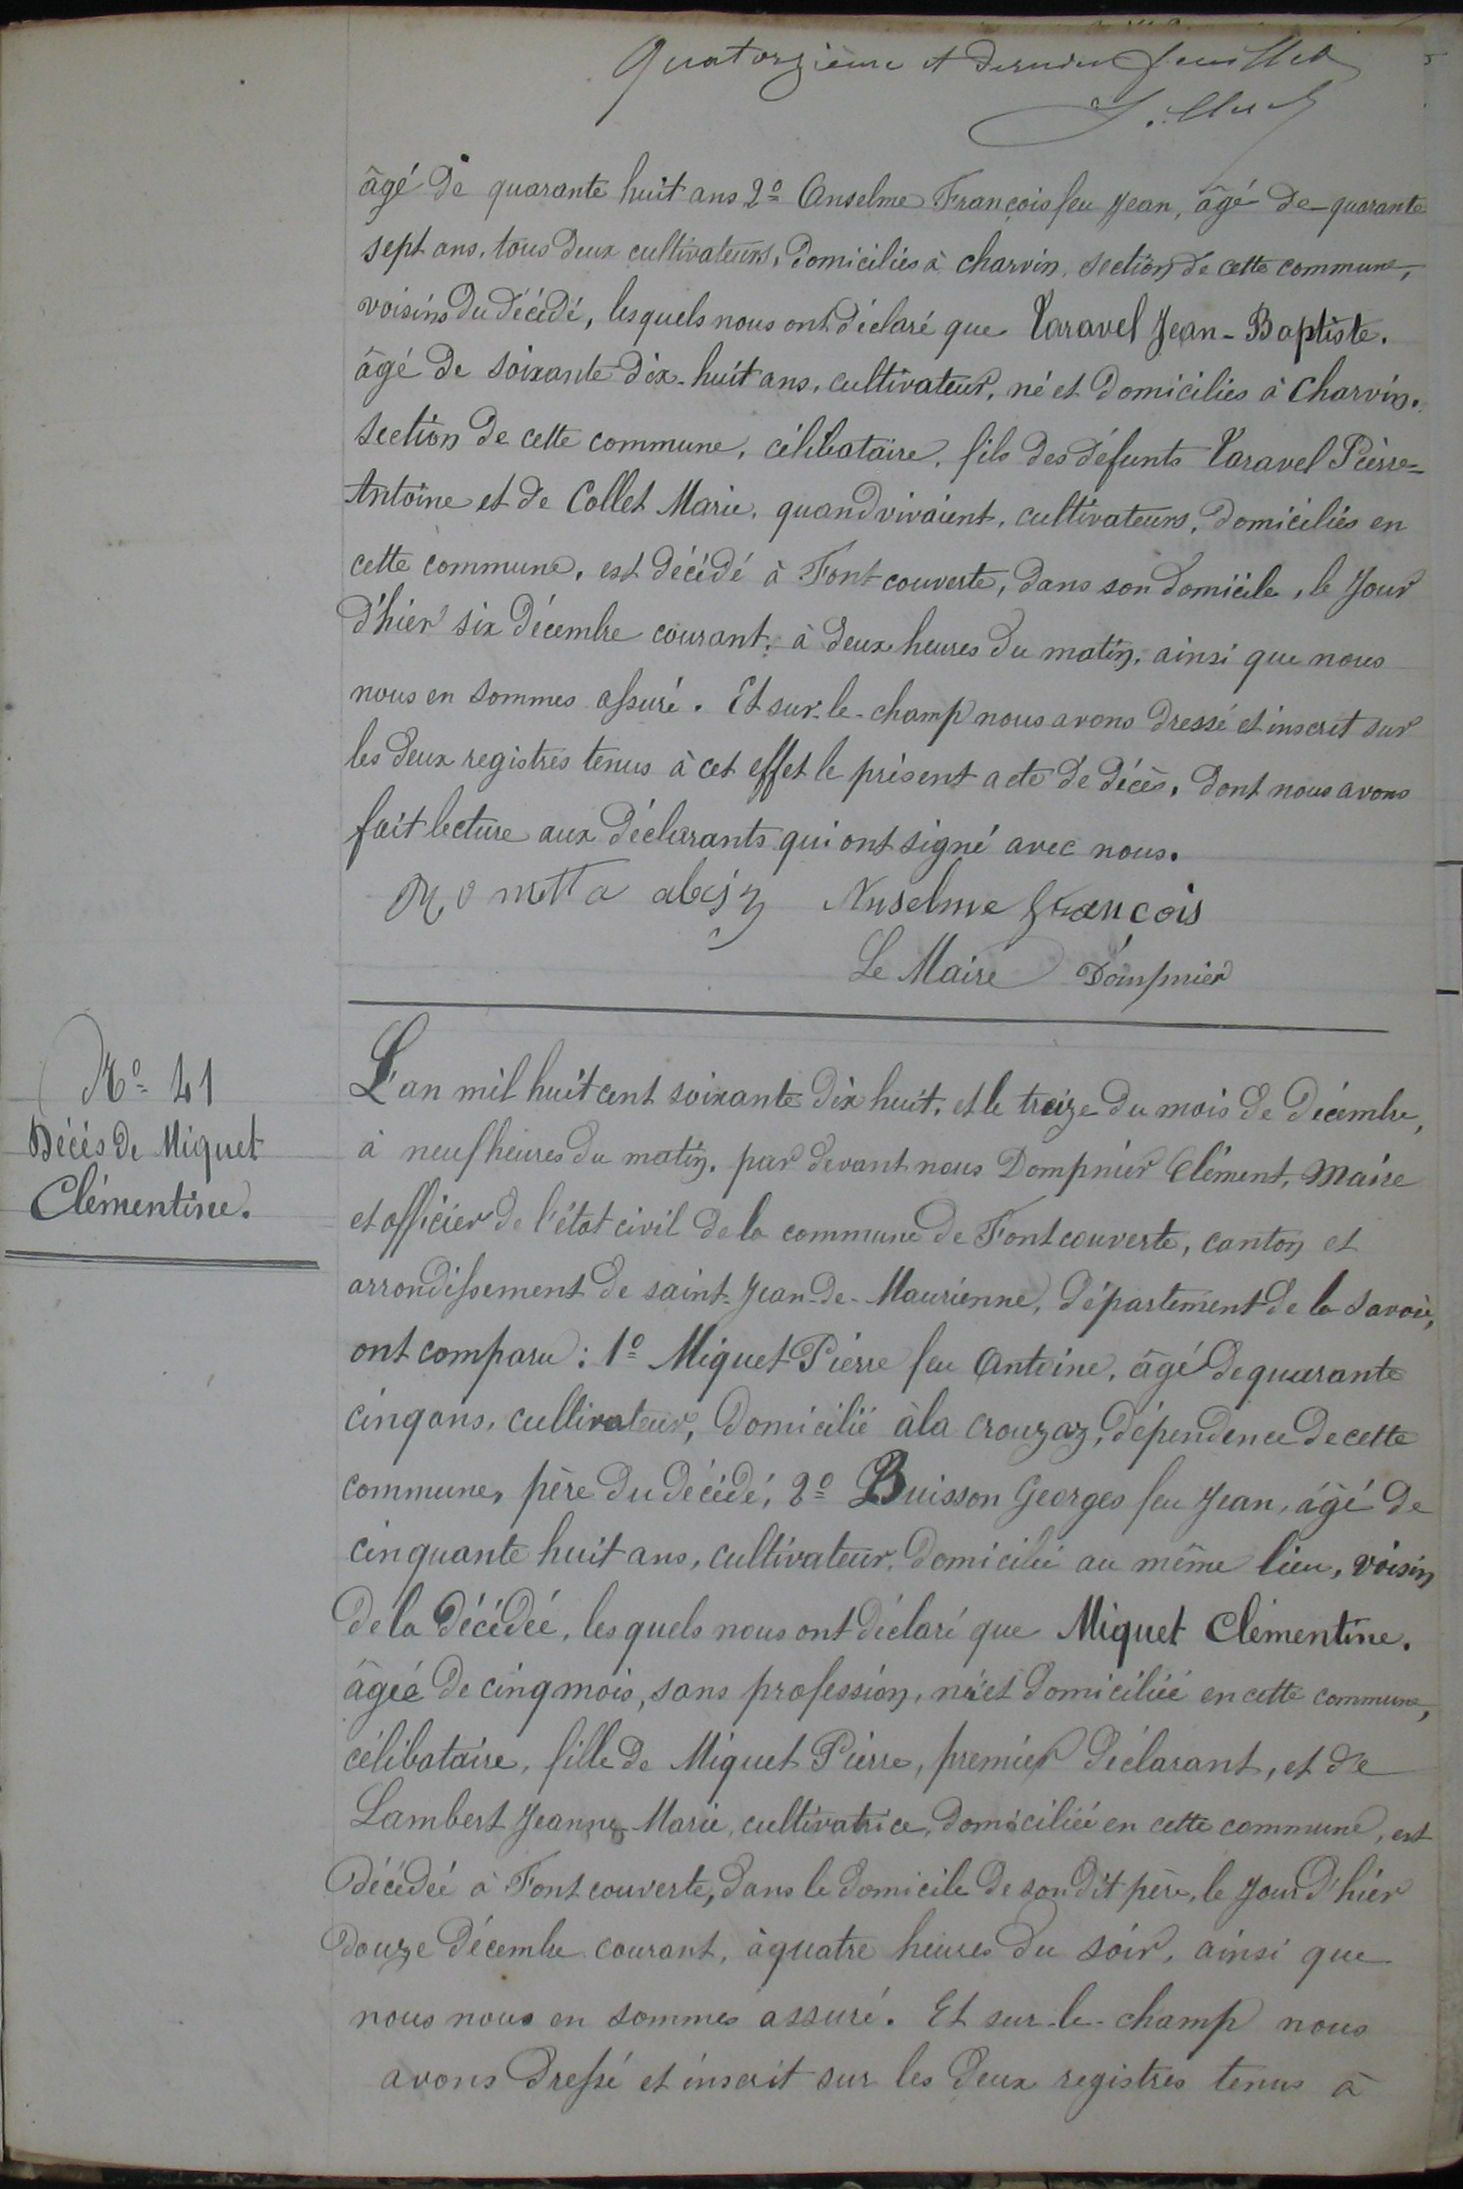 Quatorzième et dernier feuillet
âgé de quarante huit ans 2º Anselme François feu Jean, âgé de quarante
sept ans, tous deux cultivateurs, domiciliés à charvin, section de cette commune,
voisins du décédé, lesquels nous ont déclaré que Taravel Jean-Baptiste.
âgé de soixante-dix-huit ans, cultivateur, né et domiciliés à Charvin.
section de cette commune, célibataire, fils des défunts Taravel Pierre=
Antoine et de Collet Marie, quand vivaient, cultivateurs, domiciliés en
cette commune, est décédé à Fontcouverte, dans son domicile, le Jour
d'hier six décembre courant, à deux heures du matin, ainsi que nous
nous en sommes assuré. Et sur-le-champ nous avons dressé et inscrit sur
les deux registres tenus à cet effet le présent acte de décès, dont nous avons
fait lecture aux déclarants qui ont signé avec nous.
Anselme françois
Le Maire Dompnier
Nº 41
Décès de Miquet
Clémentine.
L'an mil huit cent soixante dix huit, et le treize du mois de décembre,
à neuf heures du matin, par devant nous Dompnier Clément, Maire
et officier de l'état civil de la commune de Fontcouverte, canton et
arrondissement de saint-Jean-de-Maurienne, département de la Savoie,
ont comparu : 1º Miquet Pierre feu Antoine, âgé de quarante
cinq ans, cultivateur, domicilié à la crouzaz, dépendence de cette
commune, père du décédé, 2º Buisson Georges feu Jean, âgé de
cinquante huit ans, cultivateur, domicilié au même lieu, voisin
de la décédée, lesquels nous ont déclaré que Miquet Clémentine.
âgée de cinq mois, sans profession, née et domiciliée en cette commune,
célibataire, fille de Miquet Pierre, premier déclarant, et de
Lambert Jeanne-Marie, cultivatrice, domiciliée en cette commune, est
décédée à Fontcouverte, dans le domicile de son dit père, le Jour d'hier
douze décembre courant, à quatre heures du soir, ainsi que
nous nous en sommes assuré. Et sur-le-champ nous
avons dressé et inscrit sur les deux registres tenus à